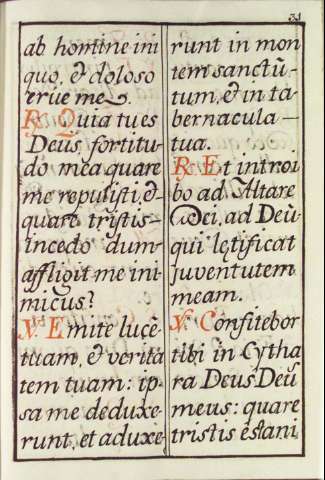 31
ab homine ini
quo, & doloso
erue me.
℟. Quia tu es
Deus fortitu-
do mea quare
me repulisti, &
quare tristis
incedo dum
affligit me ini
micus?
℣. Emite lucē
tuam, & verita
tem tuam: ip-
sa me deduxe-
runt, et aduxe-
runt in mon
tem sanctū-
tum, & in ta-
bernacula —
tua.
℟. Et introi
bo ad Altare
Dei, ad Deū
qui lętificat
juventutem
meam.
℣. Confitebor
tibi in Cytha
ra Deus Deū
meus: quare
tristis es ani